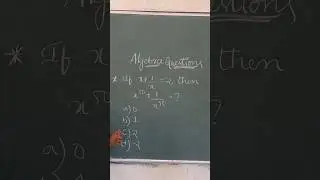 Algebra Questions
* If x
* If x+1/x=2, then
x^50+1/x^55=?
a) 0
b) 1
c) 2
d) -2
a) 0